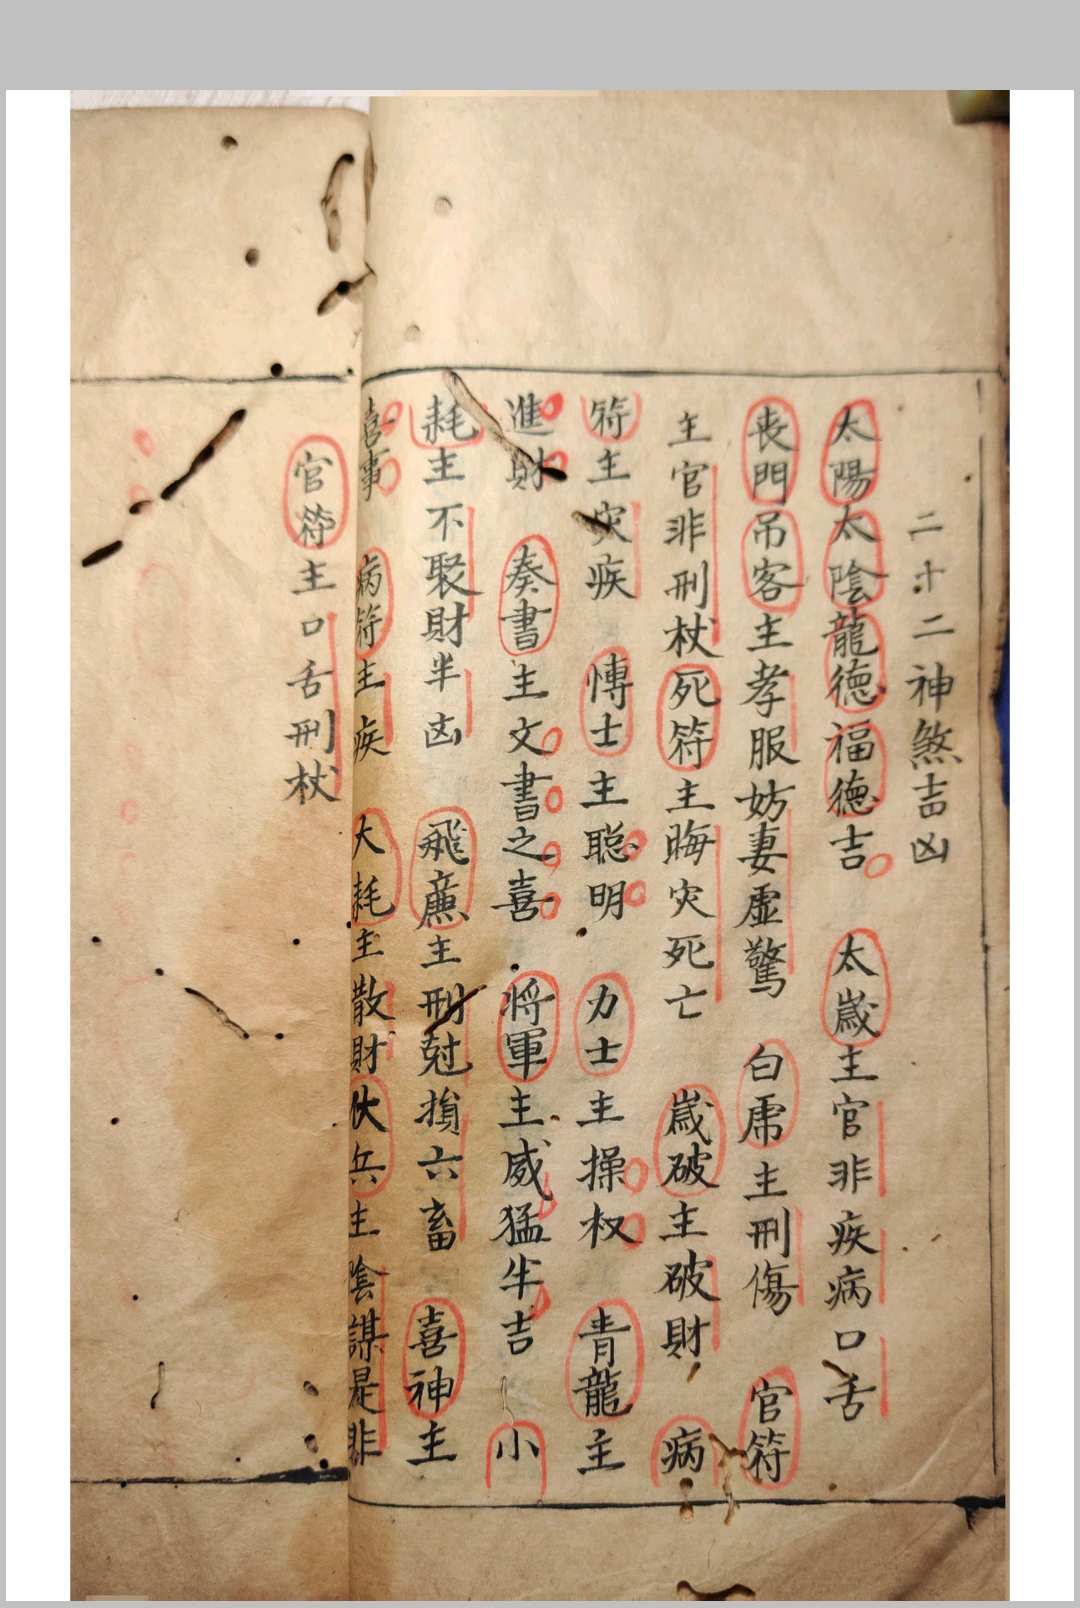 二十二神煞吉凶
太陽太陰龍德福德吉　太歲主官非疾病口舌
喪門吊客主孝服妨妻虛驚　白虎主刑傷　官符
主官非刑杖死符主晦灾死亡　歲破主破財　病
符主灾疾　愽士主聪明　力士主操权　青龍主
進財　奏書主文書之喜　将軍主威猛半吉　小
耗主不聚財半凶　飛廉主刑尅損六畜　喜神主
喜事　病符主疾　大耗主散財伏兵主陰謀是非
官符主口舌刑杖